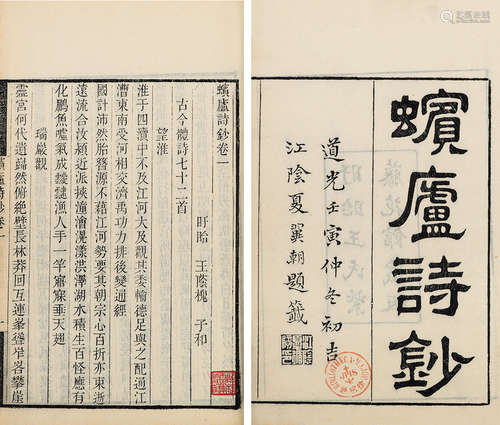 蠙廬詩鈔
道光壬寅仲冬初吉
江陰夏翼朝題籤
蠙廬詩鈔卷一
盱眙 王蔭槐 子和
古今體詩七十二首
望淮
淮于四瀆中不及江河大及觀其委輸德足與之配通江
漕東南受河相交濟禹功力排後變通經
國計沛然胎簪源不藉江河勢要其朝宗心百折亦東逝
遠流合汝潁近派挾潼澮滉漾洪澤湖水積生百怪應有
化鵬魚噓氣成靉靆漁人手一竿甯寐垂天翅
瑞巖觀
靈宮何代遺巋然俯絕壁長林莽回互連峯磴岸客攀崖